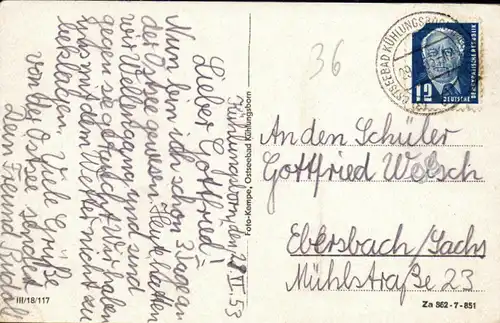 Kühlungsborn, den 28.VI.53
Lieber Gottfried!
Nun bin ich schon 3 Tage an
der Ostsee gewesen. Heute hatten
wir Wellengang und sind
gegen sie getaucht. Wir haben
uns mit dem Wetter nicht zu
beklagen. Viele Grüße
von der Ostsee sendet
Dein Freund Rudolf
III/18/117
Foto-Kempe, Ostseebad Kühlungsborn
36
OSTSEEBAD KÜHLUNGSBORN
12
DEUTSCHE
DEMOKRATISCHE REPUBLIK
An den Schüler
Gottfried Welsch
Ebersbach/Sachs
Mühlstraße 23
Za 862-7-851